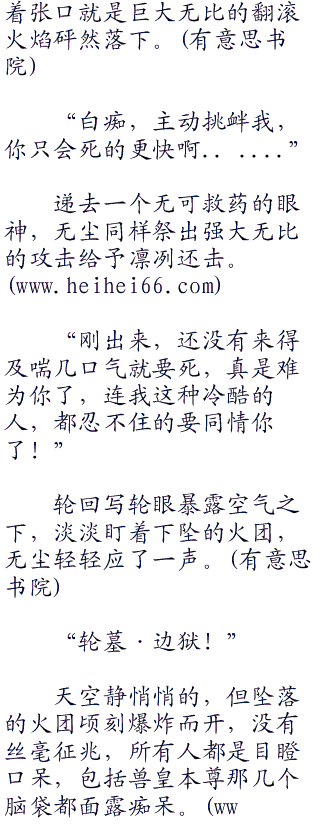 着张口就是巨大无比的翻滚
火焰砰然落下。(有意思书
院)
“白痴，主动挑衅我，
你只会死的更快啊.. ....”
递去一个无可救药的眼
神，无尘同样祭出强大无比
的攻击给予凛冽还击。
(www.heihei66.com)
“刚出来，还没有来得
及喘几口气就要死，真是难
为你了，连我这种冷酷的
人，都忍不住的要同情你
了！”
轮回写轮眼暴露空气之
下，淡淡盯着下坠的火团，
无尘轻轻应了一声。(有意思
书院)
“轮墓·边狱！”
天空静悄悄的，但坠落
的火团顷刻爆炸而开，没有
丝毫征兆，所有人都是目瞪
口呆，包括兽皇本尊那几个
脑袋都面露痴呆。(ww